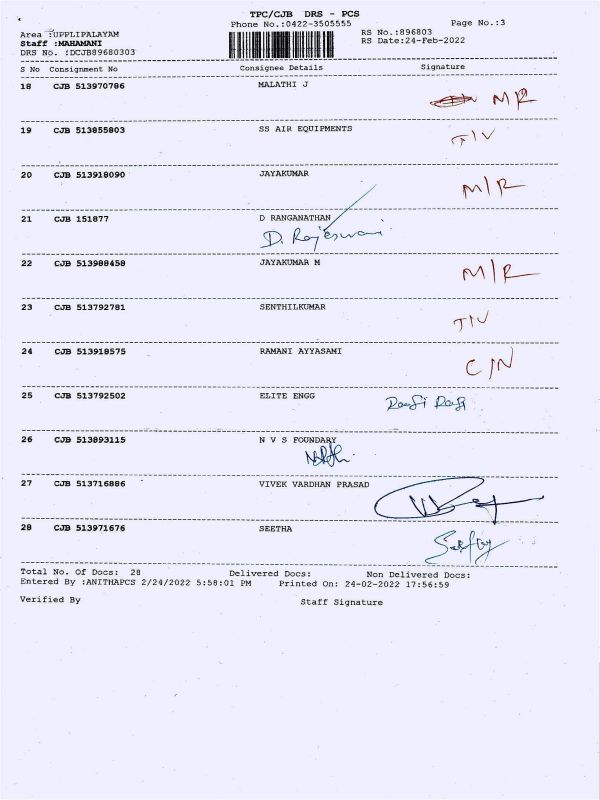 TPC/CJB DRS - PCS
Phone No.:0422-3505555
Page No.:3
Area :UPPLIPALAYAM
RS No.:896803
Staff :MAHAMANI
RS Date:24-Feb-2022
DRS No. :DCJB89680303
S No Consignment No Consignee Details Signature
18 CJB 513970786 MALATHI J
M R
19 CJB 513855803 SS AIR EQUIPMENTS
T/V
20 CJB 513918090 JAYAKUMAR
M/R
21 CJB 151877 D RANGANATHAN
D. Rajeswari
22 CJB 513988458 JAYAKUMAR M
M/R
23 CJB 513792781 SENTHILKUMAR
T/V
24 CJB 513918575 RAMANI AYYASAMI
C/N
25 CJB 513792502 ELITE ENGG
26 CJB 513893115 N V S FOUNDARY
27 CJB 513716886 VIVEK VARDHAN PRASAD
28 CJB 513971676 SEETHA
Total No. Of Docs: 28 Delivered Docs: Non Delivered Docs:
Entered By :ANITHAPCS 2/24/2022 5:58:01 PM Printed On: 24-02-2022 17:56:59
Verified By Staff Signature